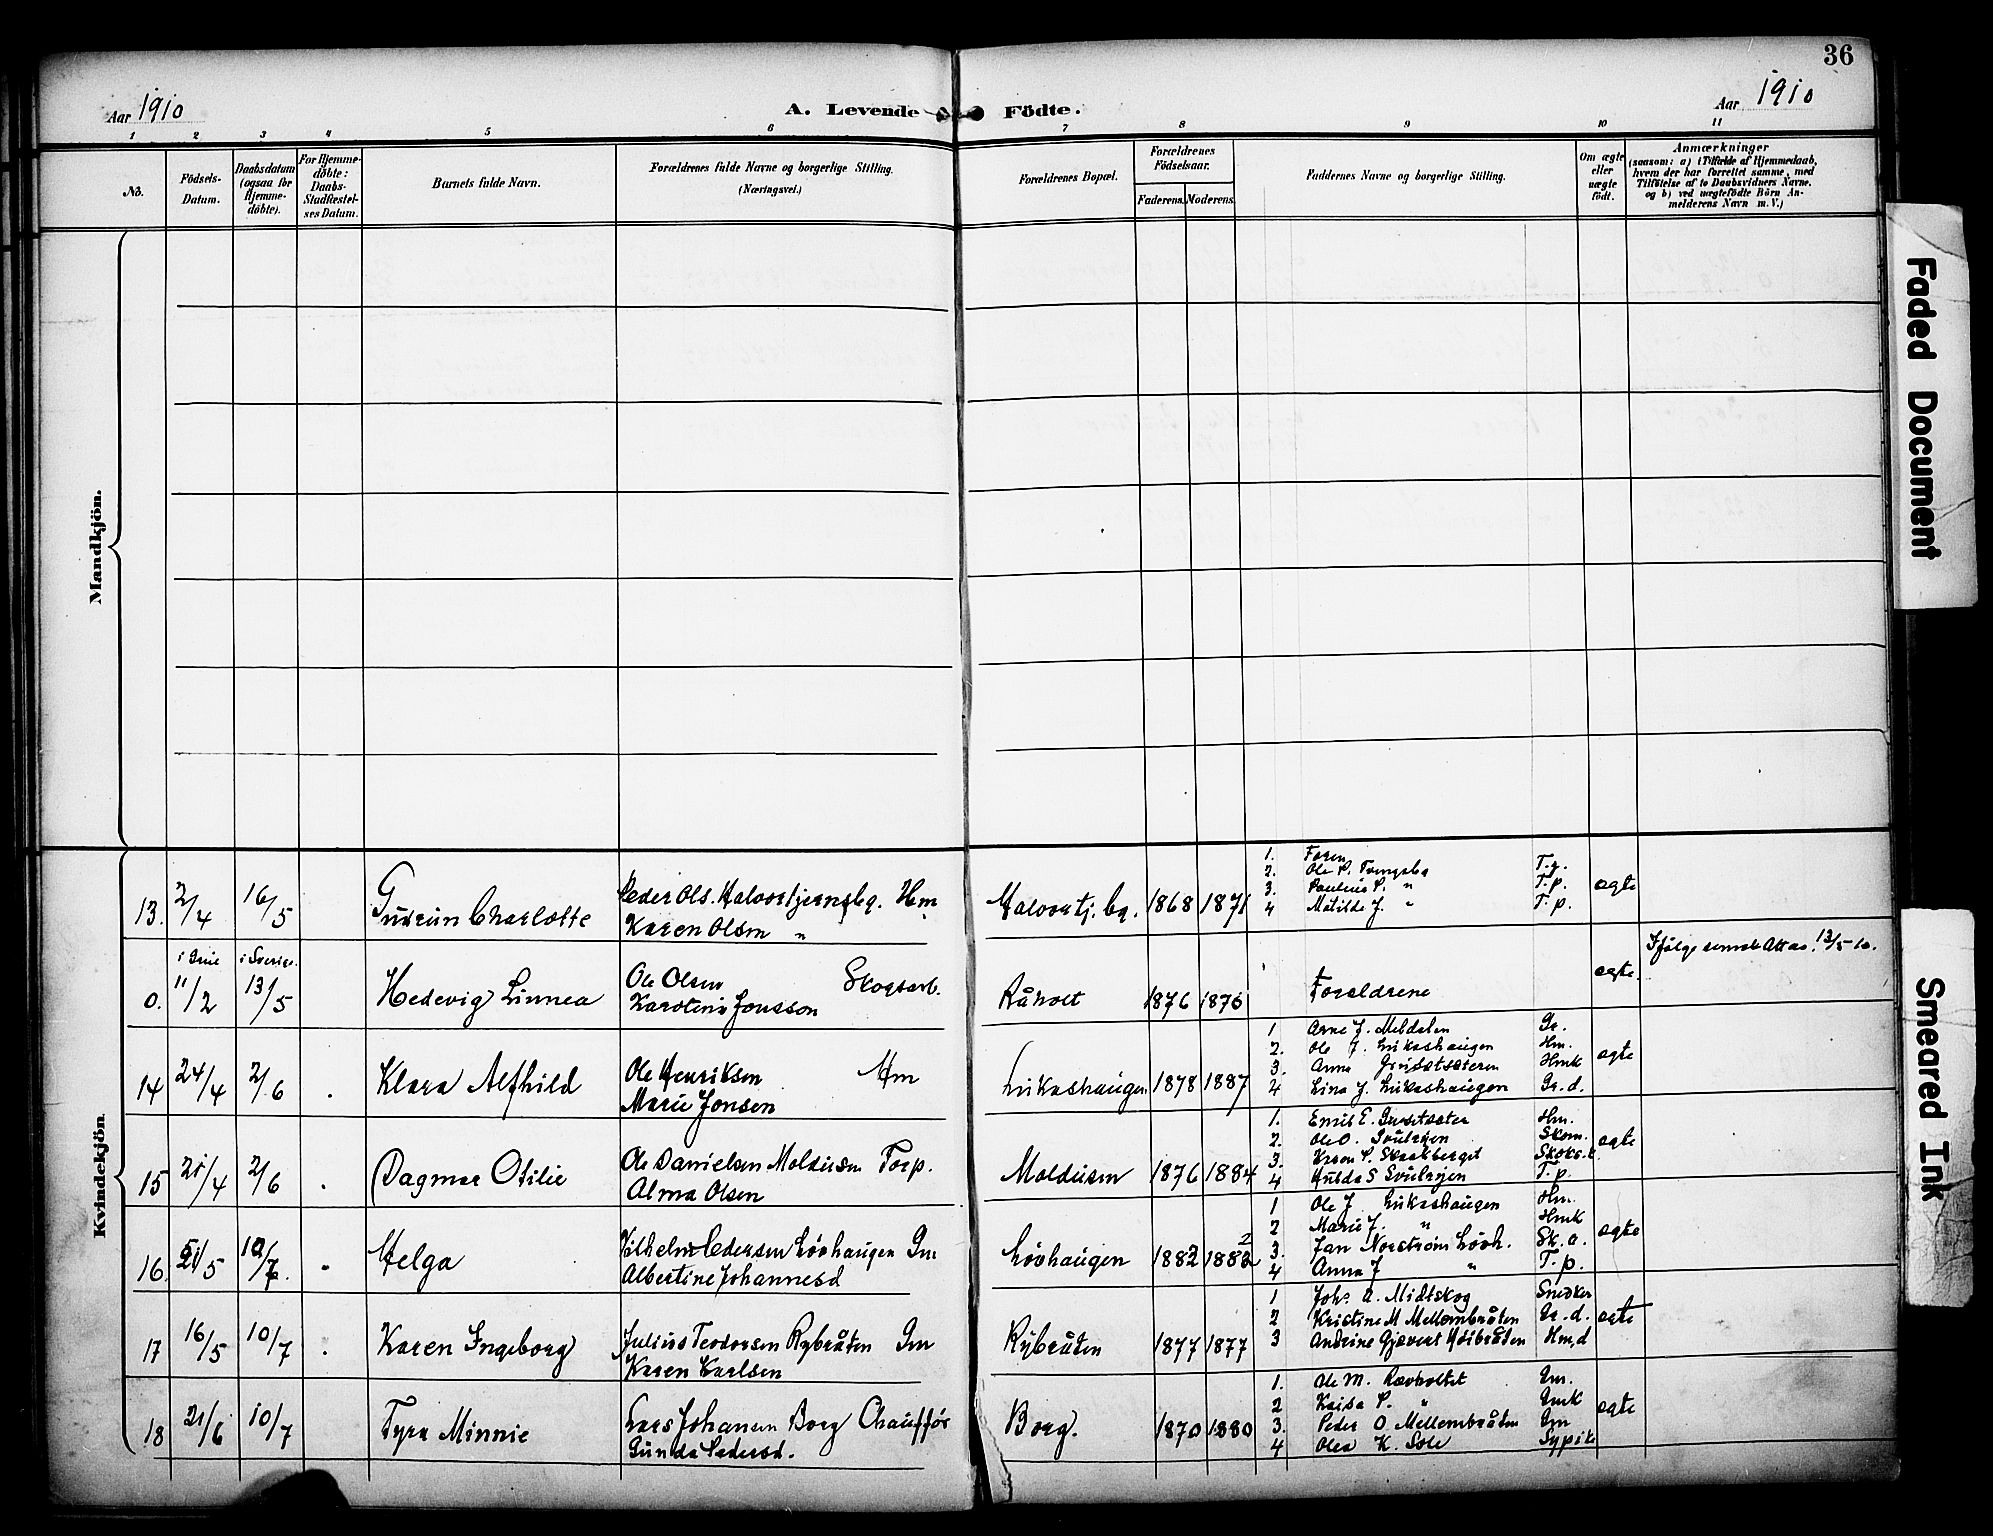 36
Aar 1910
A. Levende Födte.
Aar 1910
1 2 3 4 5 6 7 8 9 10 11
No.
Födsels-Datum.
Daabsdatum (ogsaa for Hjemme-döbte).
For Hjemme-döbte: Daabs-Stadfæstel-ses Datum.
Barnets fulde Navn.
Forældrenes fulde Navne og borgerlige Stilling.
(Næringsvei.)
Forældrenes Bopæl.
Forældrenes Födselsaar.
Faderens. Moderens.
Faddernes Navne og borgerlige Stilling.
Om ægte eller uægte födt.
Anmærkninger
(saasom: a) i Tilfælde af Hjemmedaab,
hvem der har forrettet samme, med
Tilföielse af to Daabsvidners Navne,
og b) ved uægtefödte Börn An-
melderens Navn m. V.)
Mandkjön.
Kvindekjön.
13. 2/4 16/5 Gudrun Charlotte Peder Ols. Halvortjernsbg. Hm
Karen Olsen "
Halvortj. bg. 1868 1871
1. Foren
2. Ole P. T.p.
3. Paulius P. " T.p.
4 Matilde J. " T.p.
ægte
0. i Grue 11/2 i Sverige 13/5 Hedevig Linnea Ole Olsen Skogsarb.
Karoline Jonsson
Råholt 1876 1876 Forældrene ægte. Ifølge 13/5 10.
14 24/4 2/6 . Klara Alfhild Ole Henriksen Hm
Marie Jonsen
Lukashaugen 1878 1887
1 Arne J. Meldalen Gr.
2. Ole J. Lukashaugen Hm.
3. Anna Hmk
4 Lina J. Lukashaugen Gr. d.
ægte
15 21/4 2/6 . Dagmar Otilie Ole Danielsen Moldusen Torp.
Alma Olsen
Moldusen 1876 1884
1. Emil E. Hm.
2. Ole O. Skom.
3. Karen P. Skaskberget
4 Hulda S T.p.
ægte
16. 5/5 10/7. . Helga Vilhelm Pedersen Lövhaugen Gm
Albertine Johannesd
Lövhaugen 1882 1882
1 Ole J. Lukashaugen Hm.
2 Marie J. " Hmk
3. Jan Norström Lövh. Sk. a.
4 Anna J " T.p.
ægte
17 16/5 10/7 . Karen Ingeborg Julius Teodorsen Rybråten Gm
Karen Karlsen
Rybråten 1877 1877
1 Johs. A. Midtskog Snedker
2 Kristine M Mellembråten Gr. d.
3 Andrine Gjævert Höibråten Hm, d
ægte
18 21/6 10/7 Tyra Minnie Lars Johansen Borg Chauffør
Gunda Pedersd.
Borg. 1870 1880
1. Ole M. Rævholtet Gm.
2 Kaisa P. " Gmk
3. Peder O Mellembråten Gm
4 Olea K. Sole Sypike
ægte
Faded Document
Smeared Ink